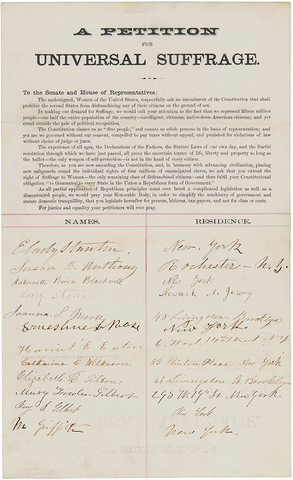 A PETITION
FOR
UNIVERSAL SUFFRAGE.
To the Senate and House of Representatives:
The undersigned, Women of the United States, respectfully ask an amendment of the Constitution that shall
prohibit the several States from disfranchising any of their citizens on the ground of sex.
In making our demand for Suffrage, we would call your attention to the fact that we represent fifteen million
people—one half the entire population of the country—intelligent, virtuous, native-born American citizens; and yet
stand outside the pale of political recognition.
The Constitution classes us as "free people," and counts us whole persons in the basis of representation; and
yet are we governed without our consent, compelled to pay taxes without appeal, and punished for violations of law
without choice of judge or juror.
The experience of all ages, the Declarations of the Fathers, the Statute Laws of our own day, and the fearful
revolution through which we have just passed, all prove the uncertain tenure of life, liberty and property so long as
the ballot—the only weapon of self-protection—is not in the hand of every citizen.
Therefore, as you are now amending the Constitution, and, in harmony with advancing civilization, placing
new safeguards round the individual rights of four millions of emancipated slaves, we ask that you extend the
right of Suffrage to Woman—the only remaining class of disfranchised citizens—and thus fulfil your Constitutional
obligation "to Guarantee to every State in the Union a Republican Form of Government."
As all partial application of Republican principles must ever breed a complicated legislation as well as a
discontented people, we would pray your Honorable Body, in order to simplify the machinery of government and
ensure domestic tranquillity, that you legislate hereafter for persons, citizens, tax-payers, and not for class or caste.
For justice and equality your petitioners will ever pray.
NAMES. RESIDENCE.
E Cady Stanton New York
Susan B. Anthony Rochester N.Y.
Antoinette Brown Blackwell New York
Lucy Stone Newark N. Jersey
Joanna S. Morse 48 Livingston Brooklyn
Ernestine L Rose New York
Harriet E. Eaton 6 West 14th Street N.Y
Catharine C Wilkeson 83 Clinton Place New York
Elizabeth R. Tilton 48 Livingston St. Brooklyn
Mary Fowler Gilbert 293 W. 19th St New York
Gilbert New York
M Griffith New York